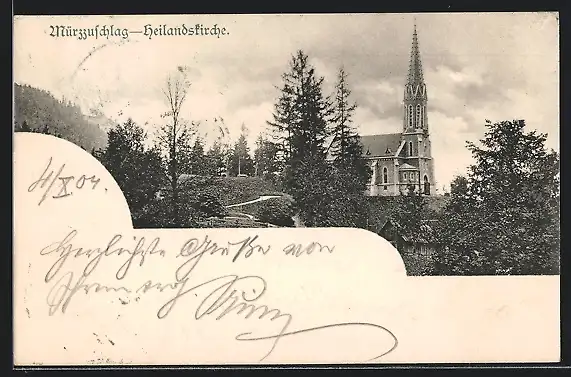 Mürzzuschlag—Heilandskirche.
4/X 04.
Herzlichste Grüße von
Ihrem erg.